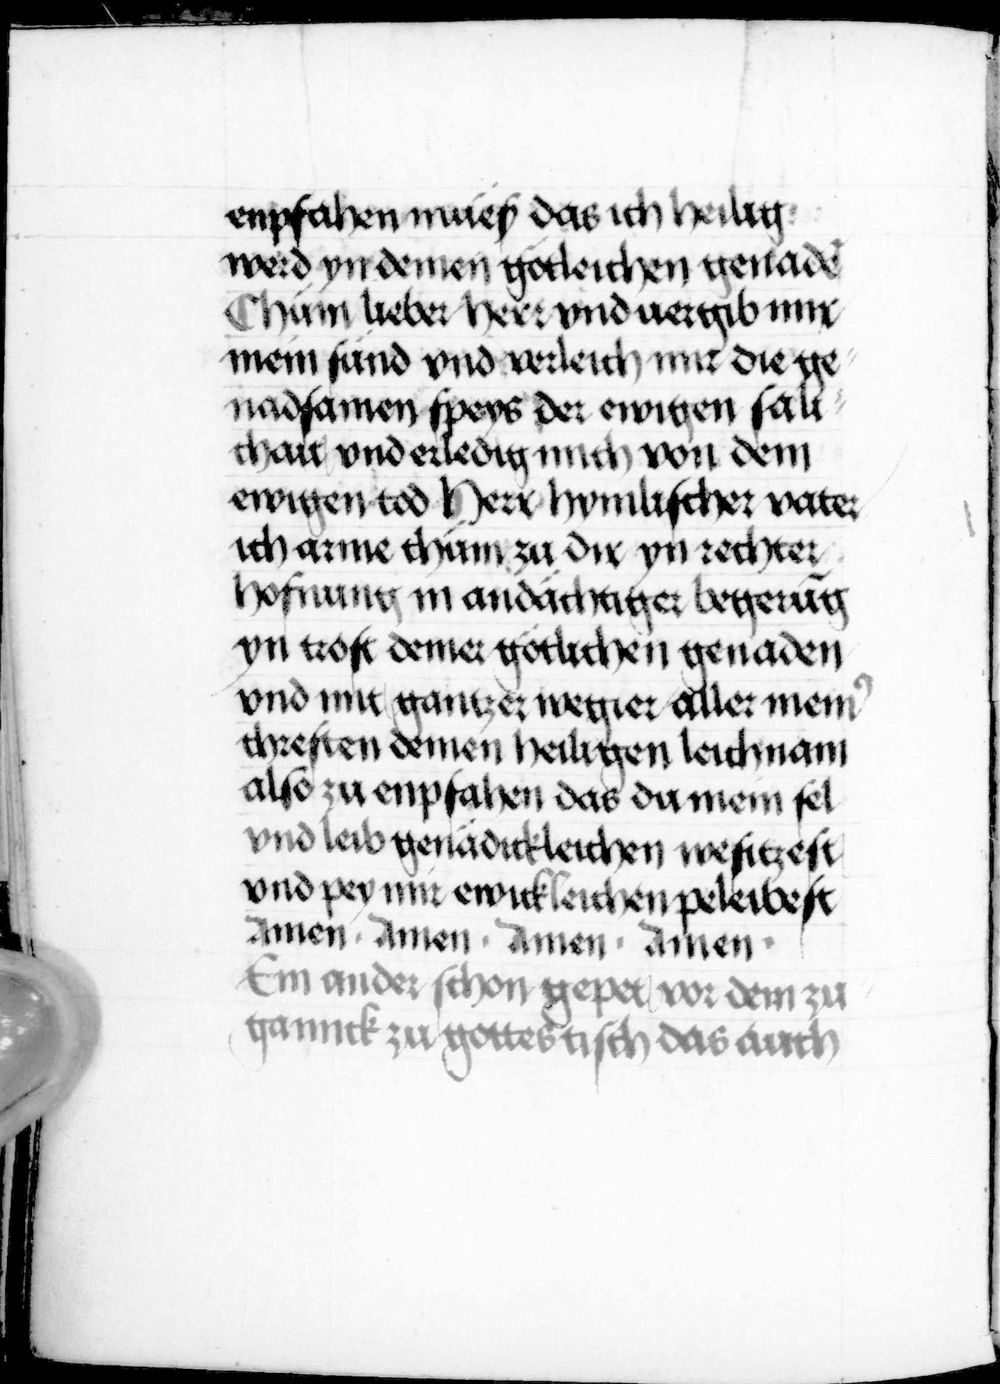 enpfahen müeß das ich heilig
werd yn deinen götleichen genadē
Chüm lieber herr vnd uergib mir
mein sünd vnd verleich mir die ge⸗
nadsamen speys der ewigen säli⸗
chait vnd erledig mich von dem
ewigen tod Herr hymlischer vater
ich arme chüm zu dir yn rechter
hofnung in andächtiger begerūg
yn trost deiner götlichen genaden
vnd mit gantzer wegier aller meinꝰ
chresten deinen heiligen leichnam
also zu enpfahen das du mein sel
vnd leib genädickleichen wesitzest
vnd pey mir ewickleichen peleibest
Amen · Amen · Amen · Amen ·
Ein ander schon gepet vor dem zu
ganнck zu gottes tisch das auch